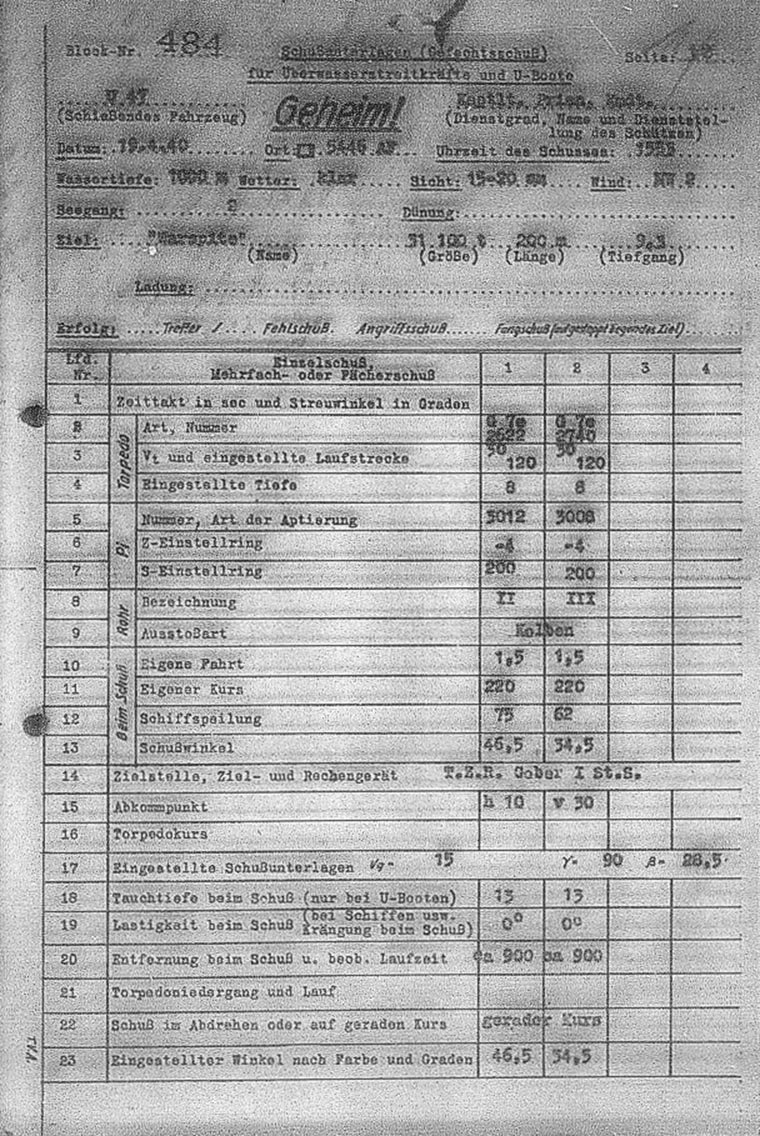 Block-Nr. 484 Schußunterlagen (Gefechtsschuß) Seite:
für Überwasserstreitkräfte und U-Boote
U 47 Geheim! Kaptlt. Prien, Kmdt.
(Schießendes Fahrzeug) (Dienstgrad, Name und Dienststel-
lung des Schützen)
Datum: 19.4.40 Ort 5446 AF Uhrzeit des Schusses:
Wassertiefe: 1000 m Wetter: klar Sicht: 15-20 sm Wind: NW 2
Seegang: 2 Dünung:
Ziel: "Warspite" 31 100 t 200 m 9,3
(Name) (Größe) (Länge) (Tiefgang)
Ladung:
Erfolg: Treffer / Fehlschuß Angriffsschuß Fangschuß (auf gestoppt liegendes Ziel)
Lfd. Nr. Einzelschuß, Mehrfach- oder Fächerschuß 1 2 3 4
1 Zeittakt in sec und Streuwinkel in Graden
Torpedo
2 Art, Nummer G 7e 2622 G 7e 2740
3 Vt und eingestellte Laufstrecke 30 120 30 120
4 Eingestellte Tiefe 8 8
Pi
5 Nummer, Art der Aptierung 3012 3008
6 Z-Einstellring -4 -4
7 S-Einstellring 200 200
Rohr
8 Bezeichnung II III
9 Ausstoßart Kolben
Beim Schuß
10 Eigene Fahrt 1,5 1,5
11 Eigener Kurs 220 220
12 Schiffspeilung 75 62
13 Schußwinkel 46,5 34,5
14 Zielstelle, Ziel- und Rechengerät T.Z.R. Geber I St.S.
15 Abkommpunkt h 10 v 30
16 Torpedokurs
17 Eingestellte Schußunterlagen Vg= 15 γ= 90 β= 28,5
18 Tauchtiefe beim Schuß (nur bei U-Booten) 13 13
19 Lastigkeit beim Schuß (bei Schiffen usw. Krängung beim Schuß) 0° 0°
20 Entfernung beim Schuß u. beob. Laufzeit ca 900 ca 900
21 Torpedoniedergang und Lauf
22 Schuß im Abdrehen oder auf geraden Kurs gerader Kurs
23 Eingestellter Winkel nach Farbe und Graden 46,5 34,5